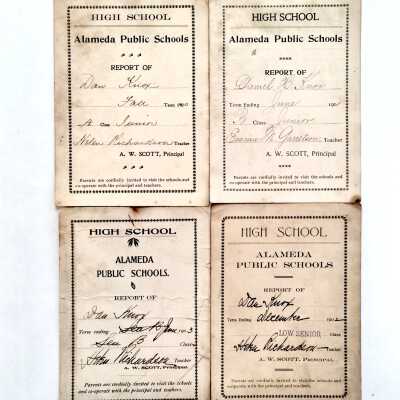 HIGH SCHOOL
Alameda Public Schools
REPORT OF
Dan Knox
Fall Term 190
A Class Junior
Helen Richardson Teacher
A. W. SCOTT, Principal
Parents are cordially invited to visit the schools and
co-operate with the principal and teachers.
HIGH SCHOOL
Alameda Public Schools
REPORT OF
Daniel H. Knox
Term Ending June 190
B Class Junior
Teacher
A. W. SCOTT, Principal
Parents are cordially invited to visit the schools and
co-operate with the principal and teachers.
HIGH SCHOOL
ALAMEDA
PUBLIC SCHOOLS.
REPORT OF
Dan Knox
Term ending June 1903
Sen B Class
Helen Richardson Teacher
A. W. SCOTT, Principal
Parents are cordially invited to visit the schools
and co-operate with the principal and teachers.
HIGH SCHOOL
ALAMEDA
PUBLIC SCHOOLS
REPORT OF
Dan Knox
Term Ending December 1902
LOW SENIOR Class
Helen Richardson Teacher
A. W. SCOTT, Principal
Parents are cordially invited to visit the schools and
co-operate with the principal and teachers.